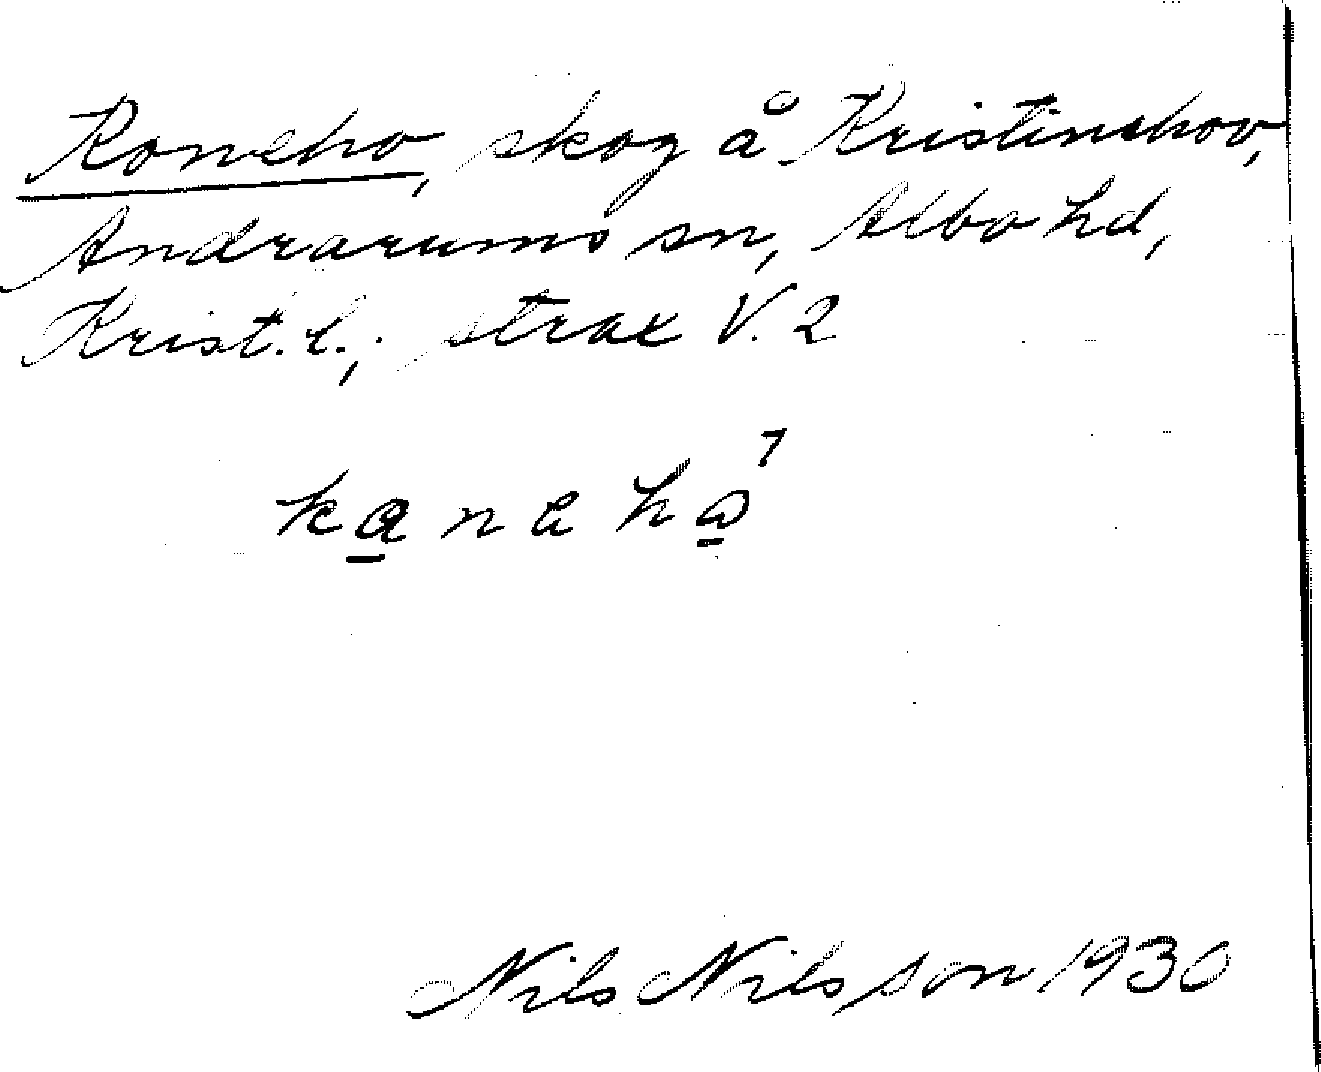 Roneho, skog å Kristinehov,
Andrarums sn, Albo hd,
Krist. l., strax V. 2
Nils Nilsson 1930